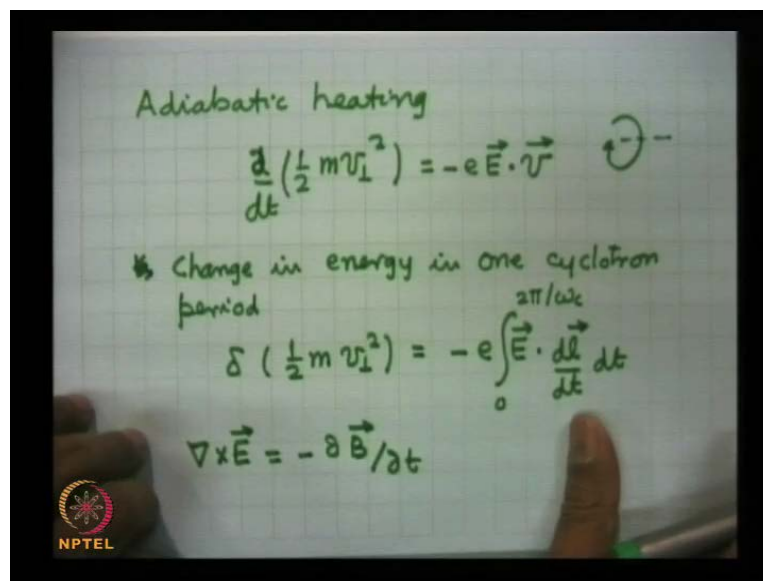 Adiabatic heating
d/dt (½ m v⊥²) = -e E⃗ · v⃗
Change in energy in one cyclotron
period
δ (½ m v⊥²) = -e ∫₀^{2π/ωc} E⃗ · dl⃗/dt dt
∇×E⃗ = -∂B⃗/∂t
NPTEL